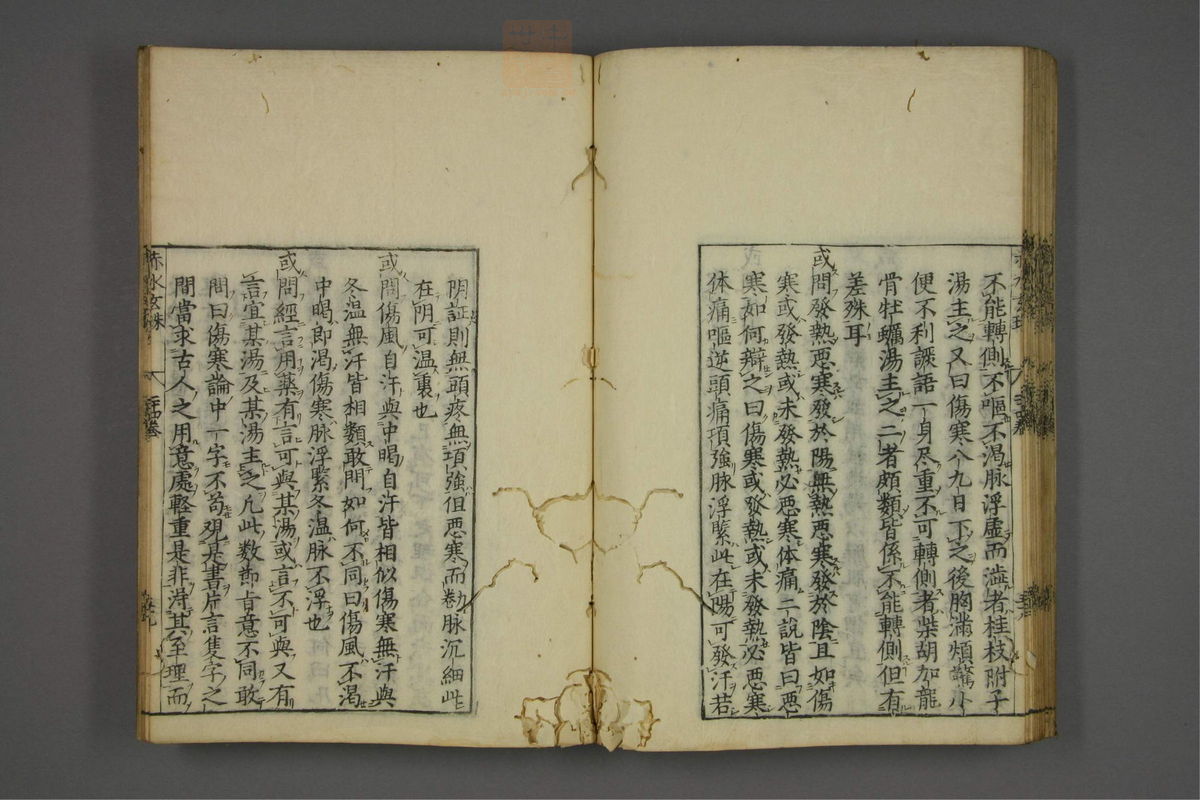 不能轉側不嘔不渴脉浮虛而濇者桂枝附子
湯主之又曰傷寒八九日下之後胸滿煩驚小
便不利讝語一身尽重不可轉側者柴胡加龍
骨牡蠣湯主之二者頗類皆係不能轉側但有
差殊耳
或問發熱惡寒發於陽無熱惡寒發於陰且如傷
寒或發熱或未發熱必惡寒体痛二說皆曰惡
寒如何辯之曰傷寒或發熱或未發熱必惡寒
体痛嘔逆頭痛項強脉浮緊此在陽可發汗若
阴証則無頭疼無項強但惡寒而踡脉沉細此
在阴可温裏也
或問傷風自汗與中暍自汗皆相似傷寒無汗與
冬温無汗皆相類敢問如何不同曰傷風不渴
中暍即渴傷寒脉浮緊冬温脉不浮也
或問經言用薬有言可與某湯或言不可與又有
言宜某湯及某湯主之凡此数節旨意不同敢
問曰傷寒論中一字不苟观是書片言隻字之
間當求古人之用意處軽重是非淂其至理而
赤水玄珠